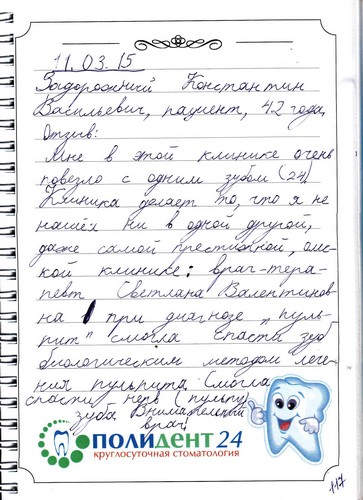 11.03.15
Задорожний Константин
Васильевич, пациент, 42 года,
Отзыв:
Мне в этой клинике очень
повезло с одним зубом (24).
Клиника делает то, что я не
нашёл ни в одной другой,
даже самой престижной, омс-
кой клинике: врач-тера-
певт Светлана Валентинов-
на при диагнозе „пуль-
пит" смогла спасти зуб
биологическим методом лече-
ния пульпита. Смогла
спасти нерв (пульпу)
зуба. Внимательный
врач.
ПОЛИДЕНТ 24
круглосуточная стоматология
117